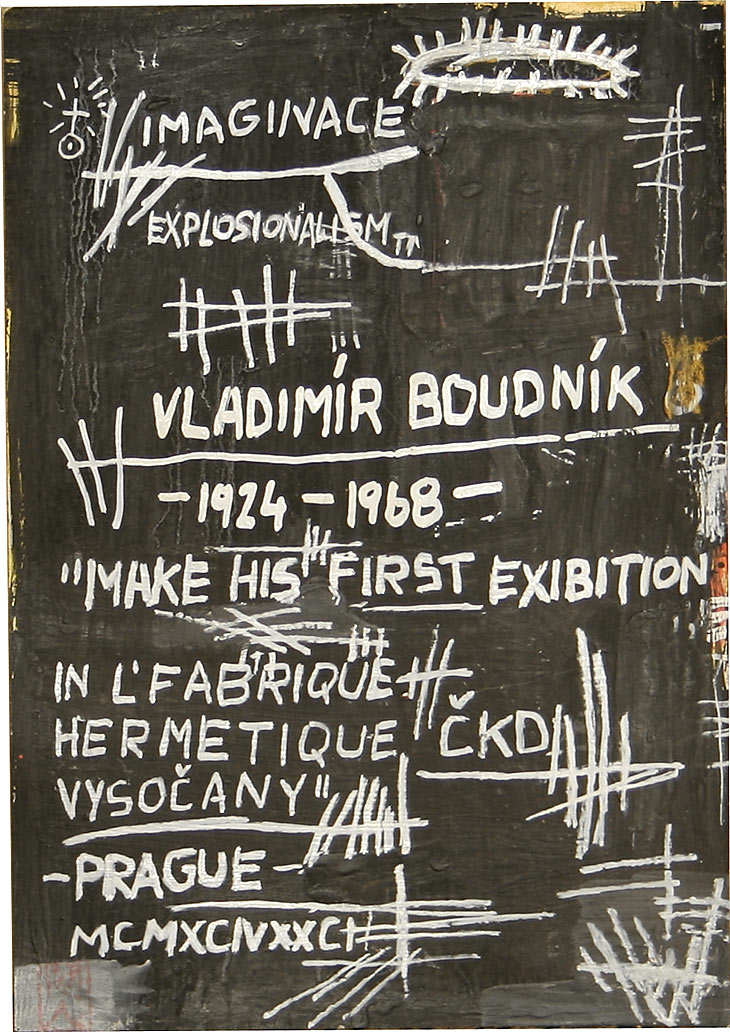 IMAGINACE
EXPLOSIONALISM
VLADIMÍR BOUDNÍK
-1924-1968-
"MAKE HIS FIRST EXIBITION
IN L'FABRIQUE
HERMETIQUE ČKD
VYSOČANY"
-PRAGUE-
MCMXCIVXXCI